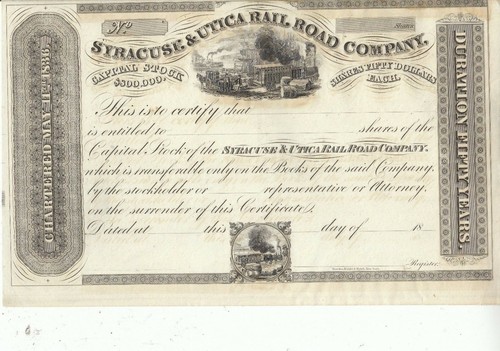 No.
Shares
SYRACUSE & UTICA RAIL ROAD COMPANY,
CAPITAL STOCK
$800,000.
SHARES FIFTY DOLLARS
EACH.
CHARTERED MAY 11th 1836.
DURATION FIFTY YEARS.
This is to certify that
is entitled to shares of the
Capital Stock of the SYRACUSE & UTICA RAIL ROAD COMPANY,
which is transferable only on the Books of the said Company,
by the stockholder or representative or Attorney,
on the surrender of this Certificate.
Dated at this day of 18
Register.